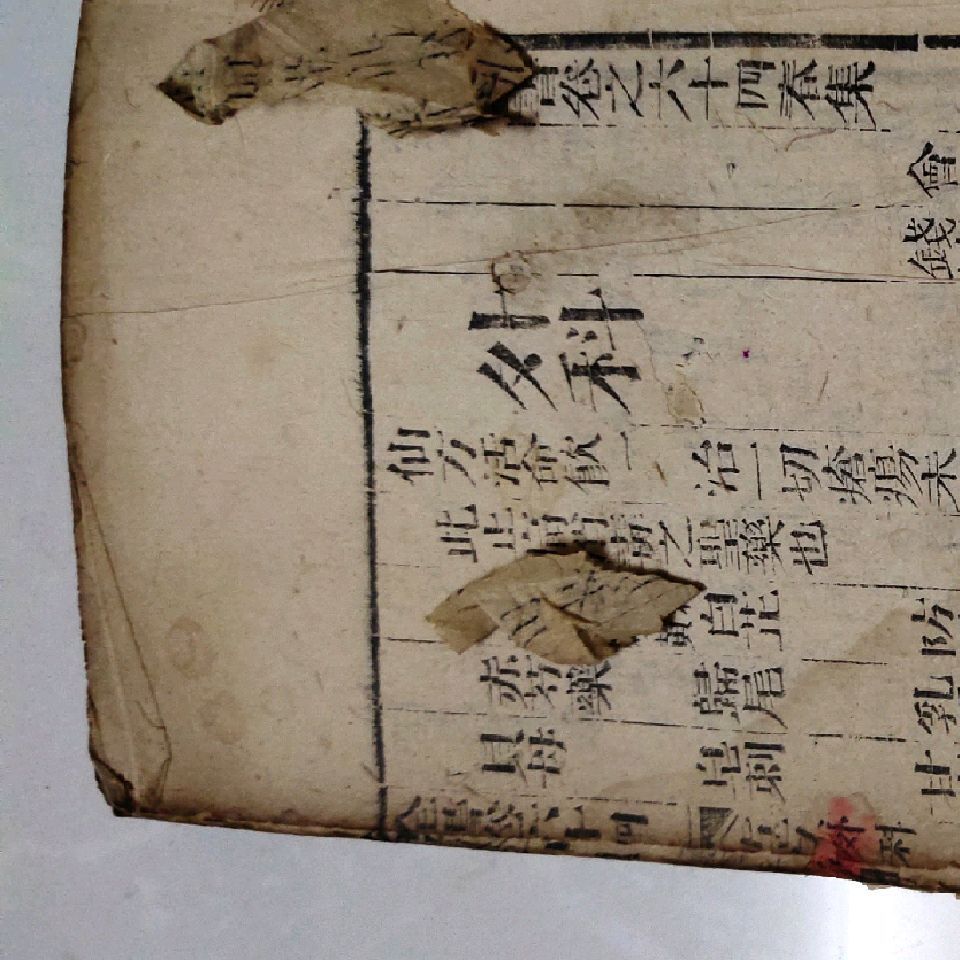 書卷之六十四春集
會
錢
外科
仙方活命飲一 治一切瘡瘍未
此止痛 毒之聖藥也
白芷 防
赤芍藥 歸尾 乳
貝母 皂刺 甘
全書卷六十四 外科